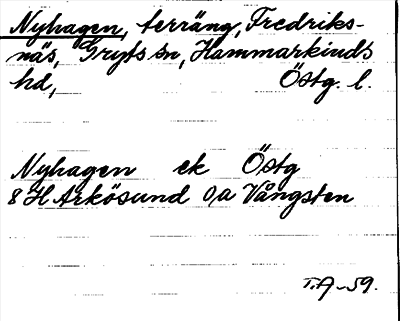 Nyhagen, terräng, Fredriks-
näs, Gryts sn, Hammarkinds
hd, Östg. l.
Nyhagen ek Östg
8 H Arkösund o/a Vångsten
T.A-59.